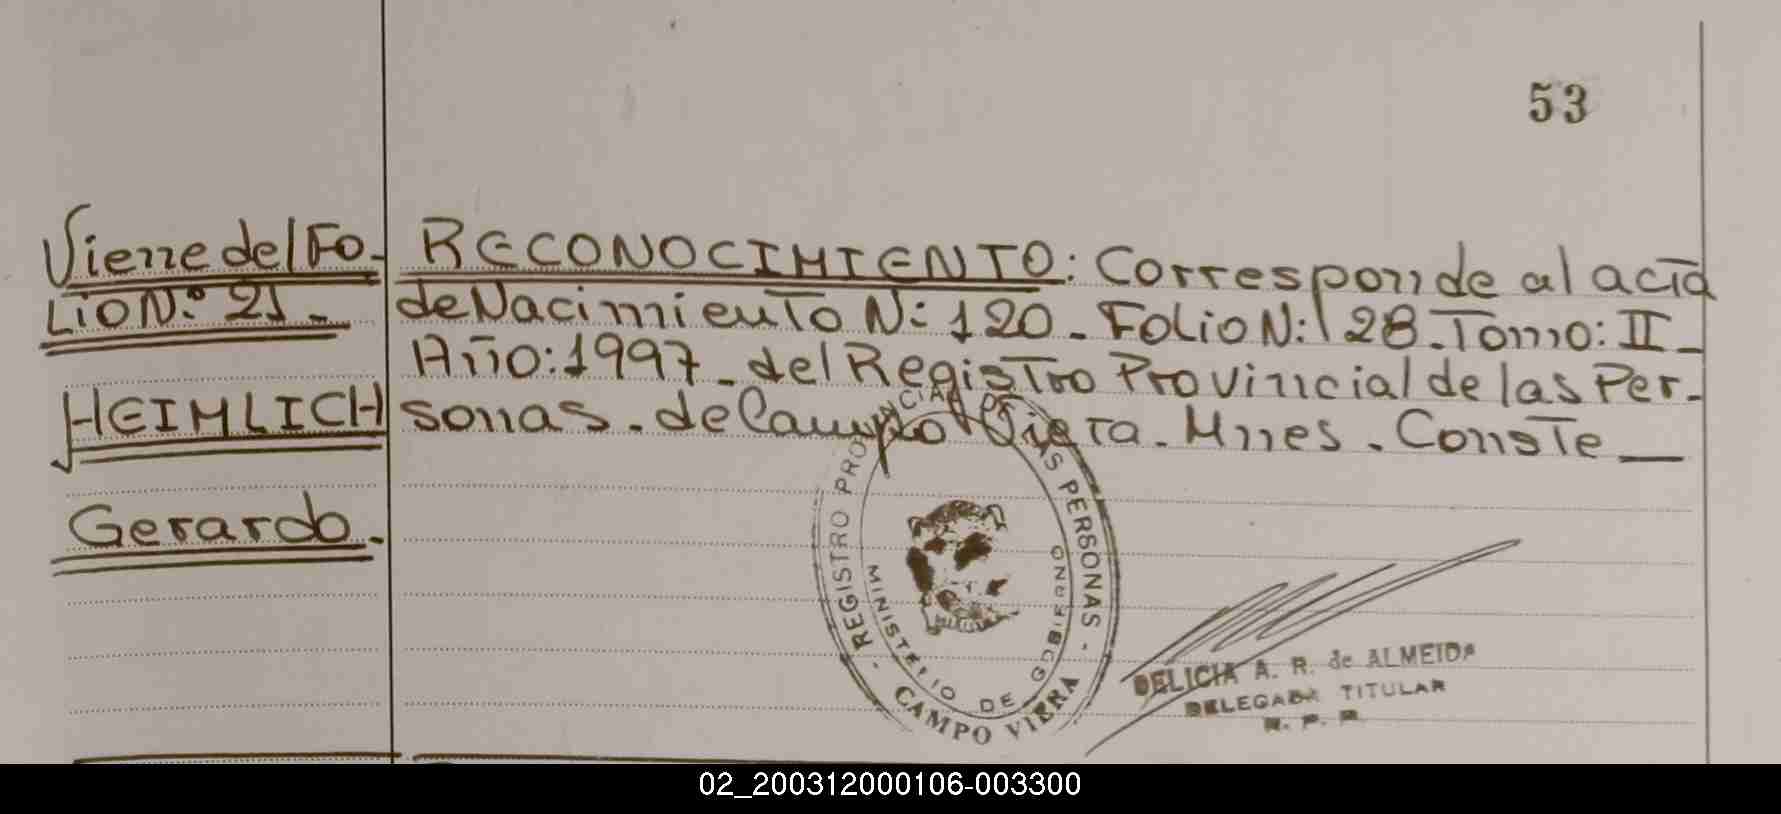 53
Viene del Fo-
lio N:º 21.-
HEIMLICH
Gerardo.-
RECONOCIMIENTO: Corresponde al acta
de Nacimiento N: 120 - Folio N: 128 - Tomo: II -
Año: 1997 - del Registro Provincial de las Per-
sonas. de Campo Viera. Mnes. Conste
REGISTRO PROVINCIAL DE LAS PERSONAS - CAMPO VIERA -
MINISTERIO DE GOBIERNO
DELICIA A. R. de ALMEIDA
DELEGADA TITULAR
R. P. P.
02_200312000106-003300